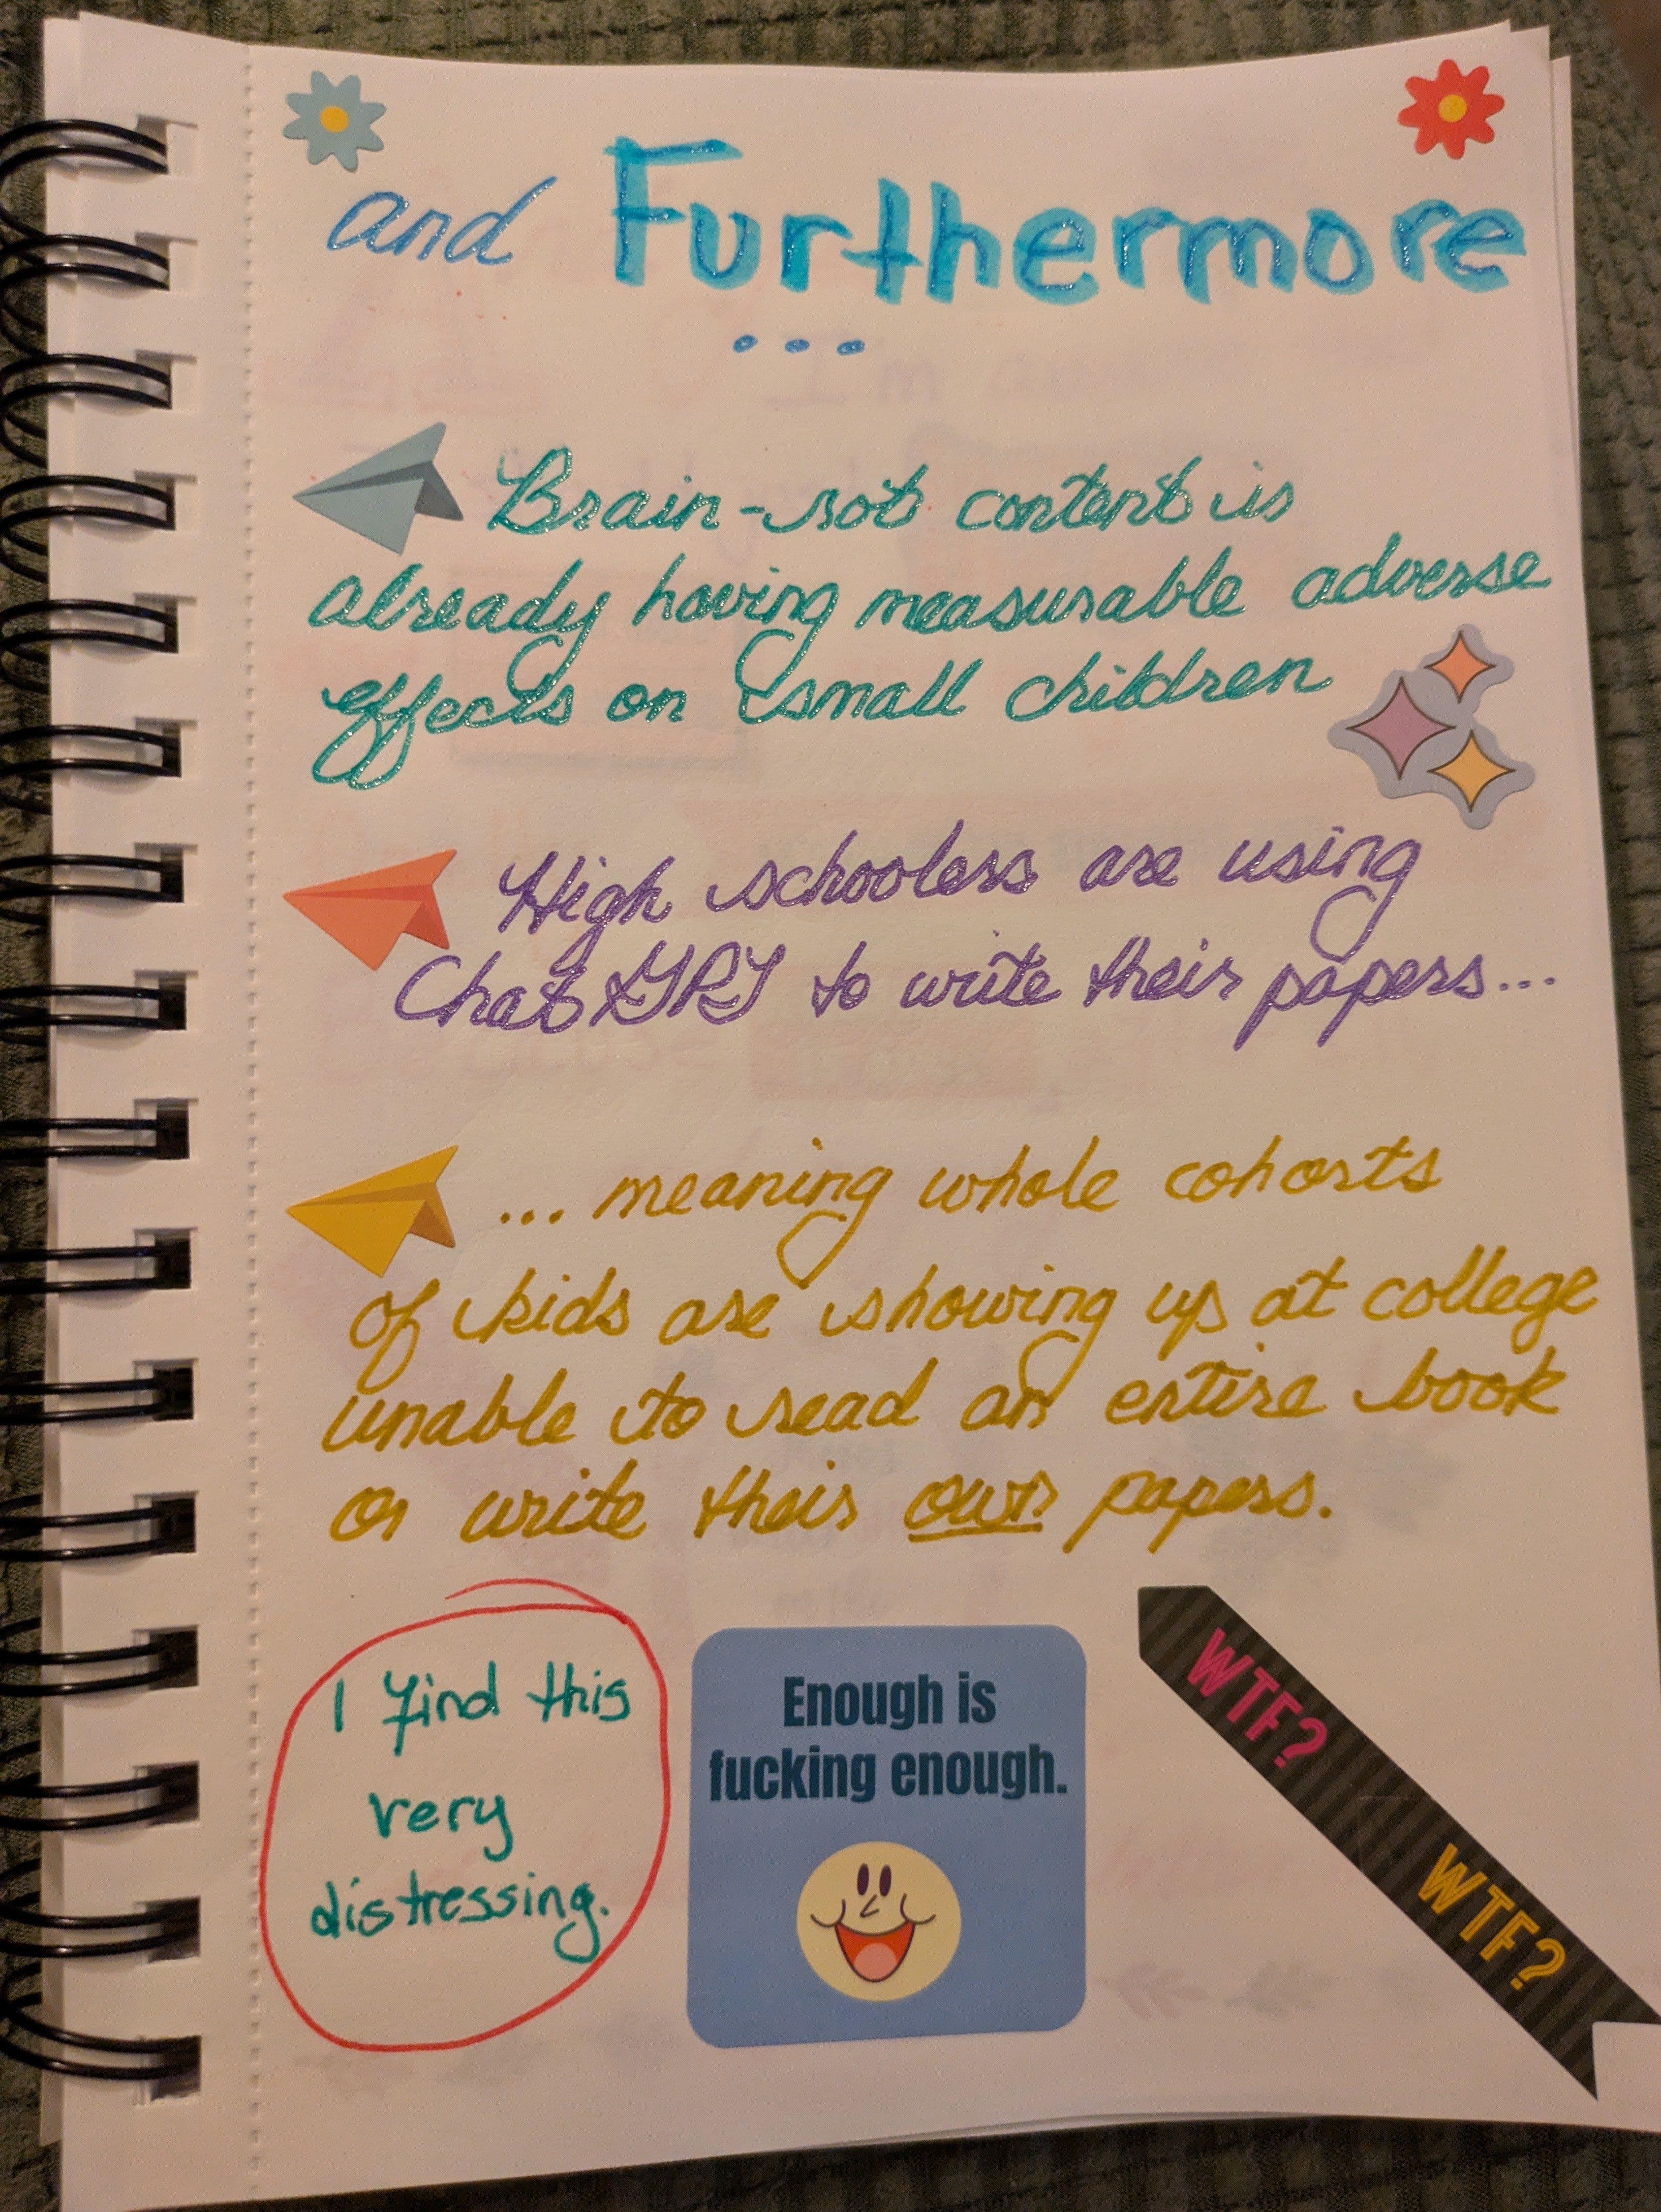 and Furthermore
...
Brain-rot content is
already having measurable adverse
effects on small children
High schoolers are using
ChatGPT to write their papers...
... meaning whole cohorts
of kids are showing up at college
unable to read an entire book
or write their own papers.
I find this
very
distressing.
Enough is
fucking enough.
WTF?
WTF?